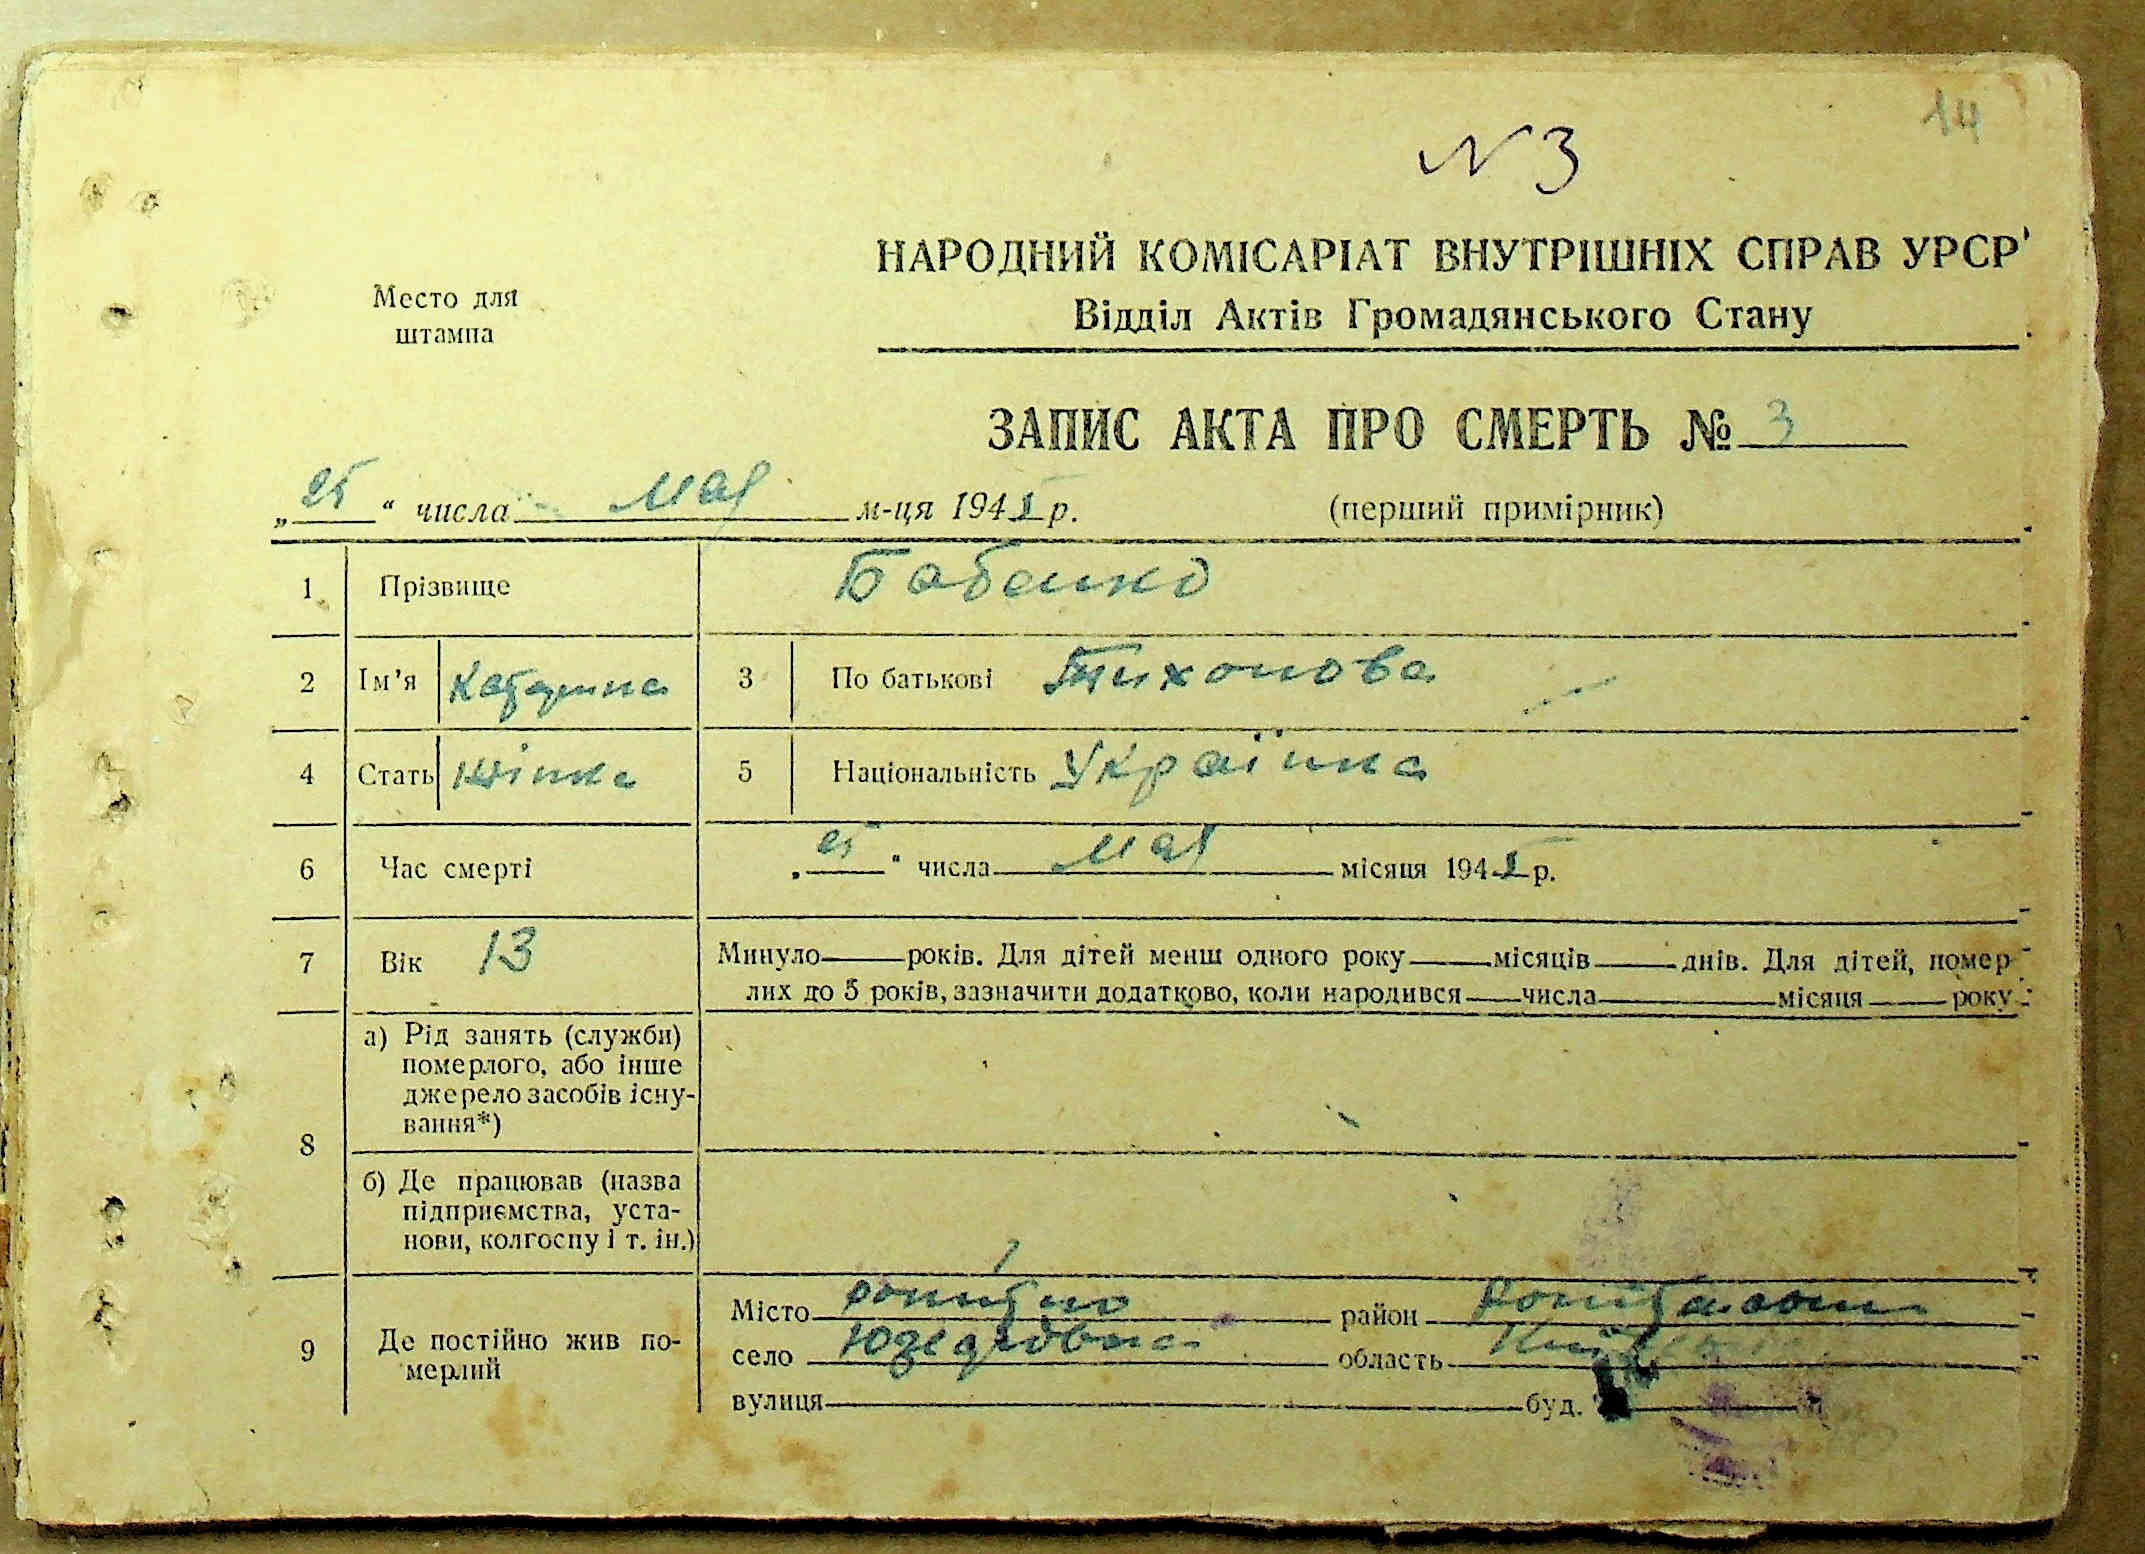 14
N 3
Место для
штампа
НАРОДНИЙ КОМІСАРІАТ ВНУТРІШНІХ СПРАВ УРСР
Відділ Актів Громадянського Стану
ЗАПИС АКТА ПРО СМЕРТЬ № 3
„25“ числа мая м-ця 1945 р. (перший примірник)
1 Прізвище Бабенко
2 Ім’я Катерина 3 По батькові Тихонова
4 Стать жінка 5 Національність Українка
6 Час смерті „25“ числа мая місяця 1945 р.
7 Вік 13 Минуло ___ років. Для дітей менш одного року ___ місяців ___ днів. Для дітей, помер
лих до 5 років, зазначити додатково, коли народився ___ числа ___ місяця ___ року
8
а) Рід занять (служби)
померлого, або інше
джерело засобів існу-
вання*)
б) Де працював (назва
підприємства, уста-
нови, колгоспу і т. ін.)
9 Де постійно жив по-
мерлий
Місто район
село область
вулиця буд.